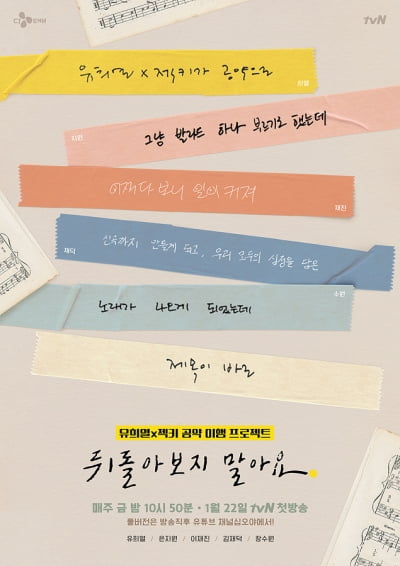 CJ ENM
tvN
유희열 x 젝키가 공약으로
희열
지원
그냥 발라드 하나 부르기로 했는데
어쩌다 보니 일이 커져
재진
재덕
신곡까지 만들게 되고, 우리 모두의 심정을 담은
수원
노래가 나오게 되었는데
제목이 바로
유희열x젝키 공약 이행 프로젝트
뒤돌아보지 말아요.
매주 금 밤 10시 50분 · 1월 22일 tvN 첫방송
풀버전은 방송직후 유튜브 채널십오야에서!
유희열 / 은지원 / 이재진 / 김재덕 / 장수원